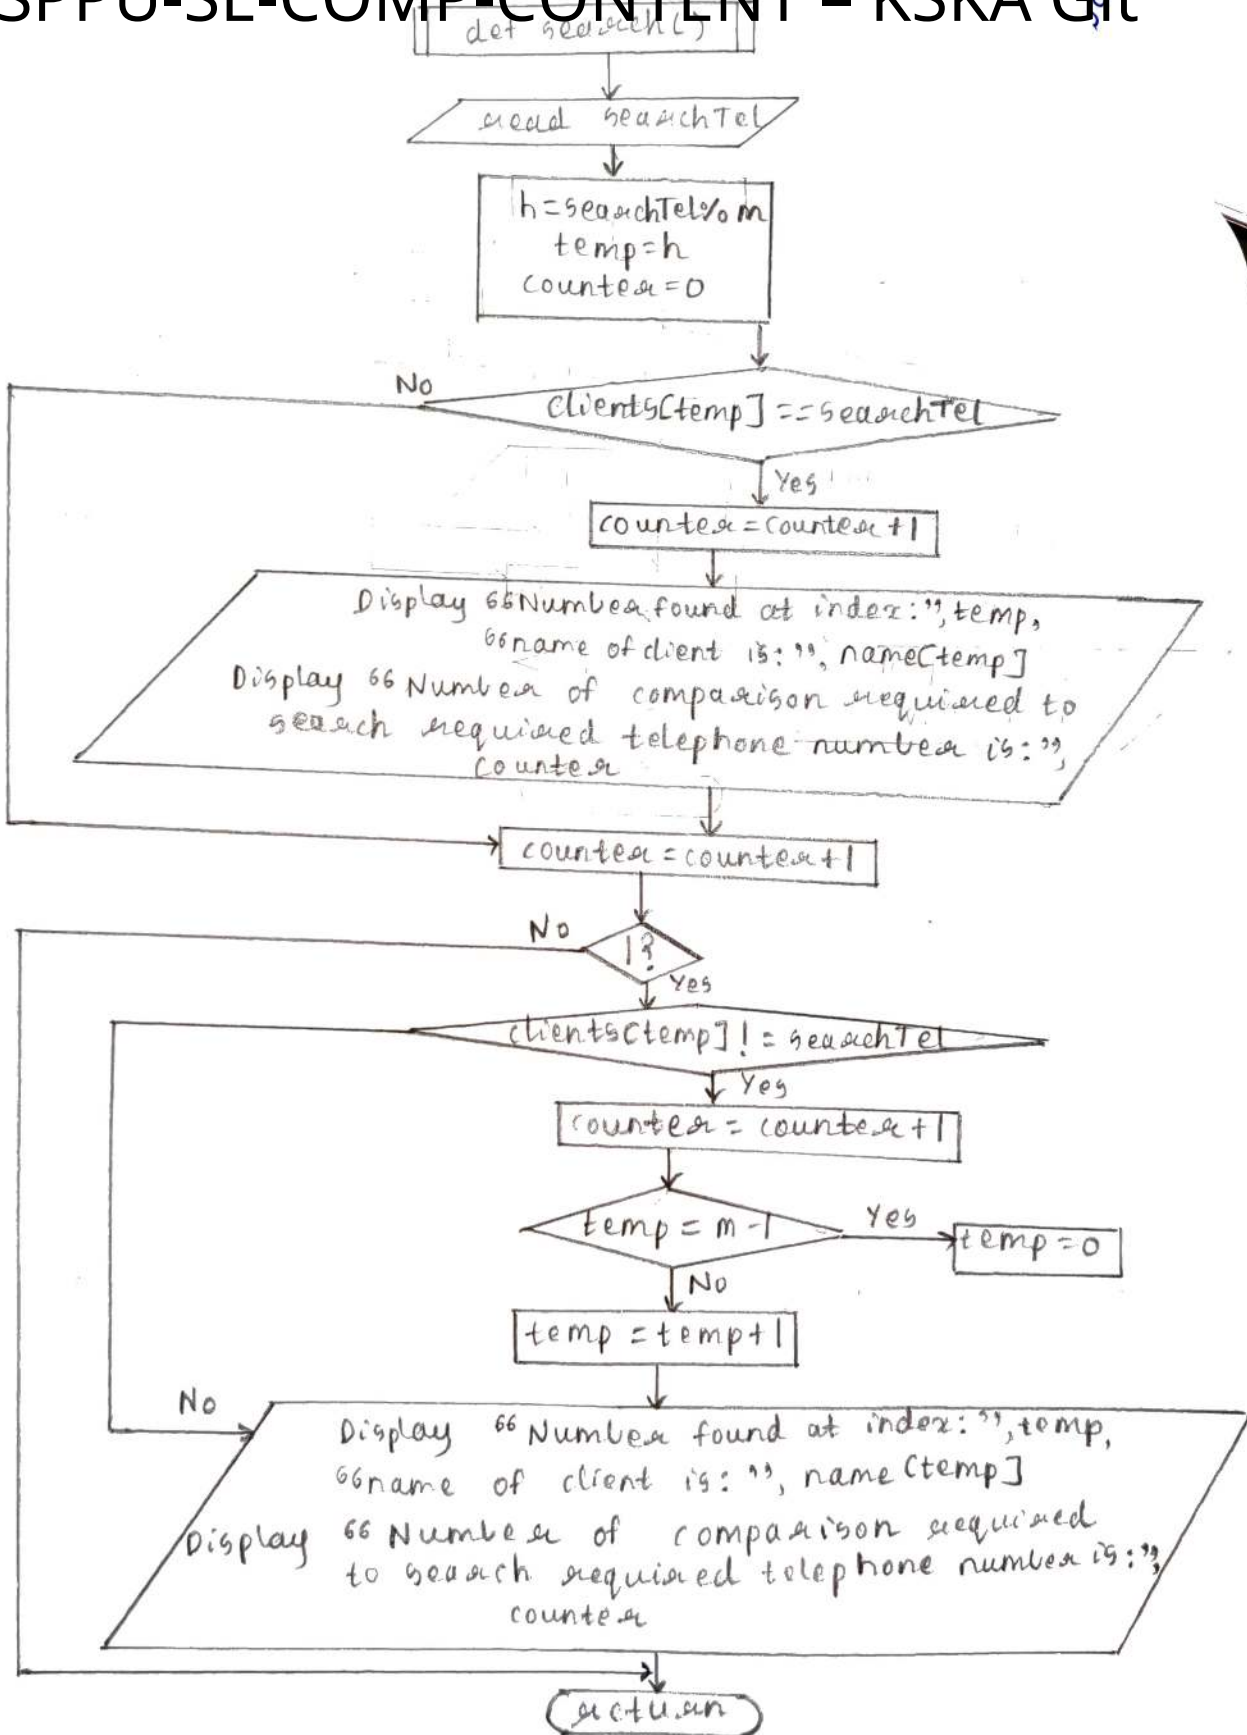 SPPU-SE-COMP-CONTENT – KSKA Git
def search()
read searchTel
h=searchTel%m
temp=h
counter=0
No
clients[temp]==searchTel
Yes
counter=counter+1
Display “Number found at index:”, temp,
“name of client is:”, name[temp]
Display “Number of comparison required to
search required telephone number is:”,
counter
counter=counter+1
No
1?
Yes
clients[temp]!=searchTel
Yes
counter=counter+1
temp=m-1
Yes
temp=0
No
temp=temp+1
No
Display “Number found at index:”, temp,
“name of client is:”, name[temp]
Display “Number of comparison required
to search required telephone number is:”,
counter
return